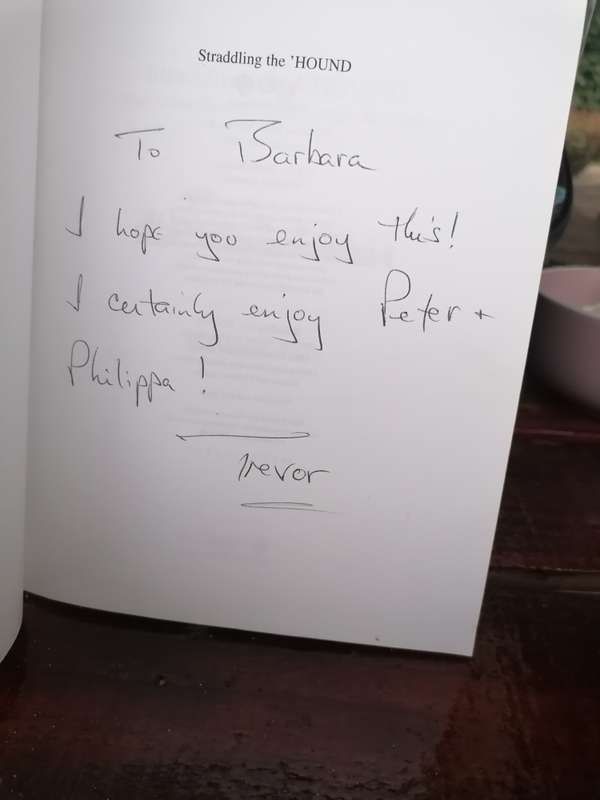 Straddling the 'HOUND
To Barbara
I hope you enjoy this!
I certainly enjoy Peter +
Philippa!
Trevor